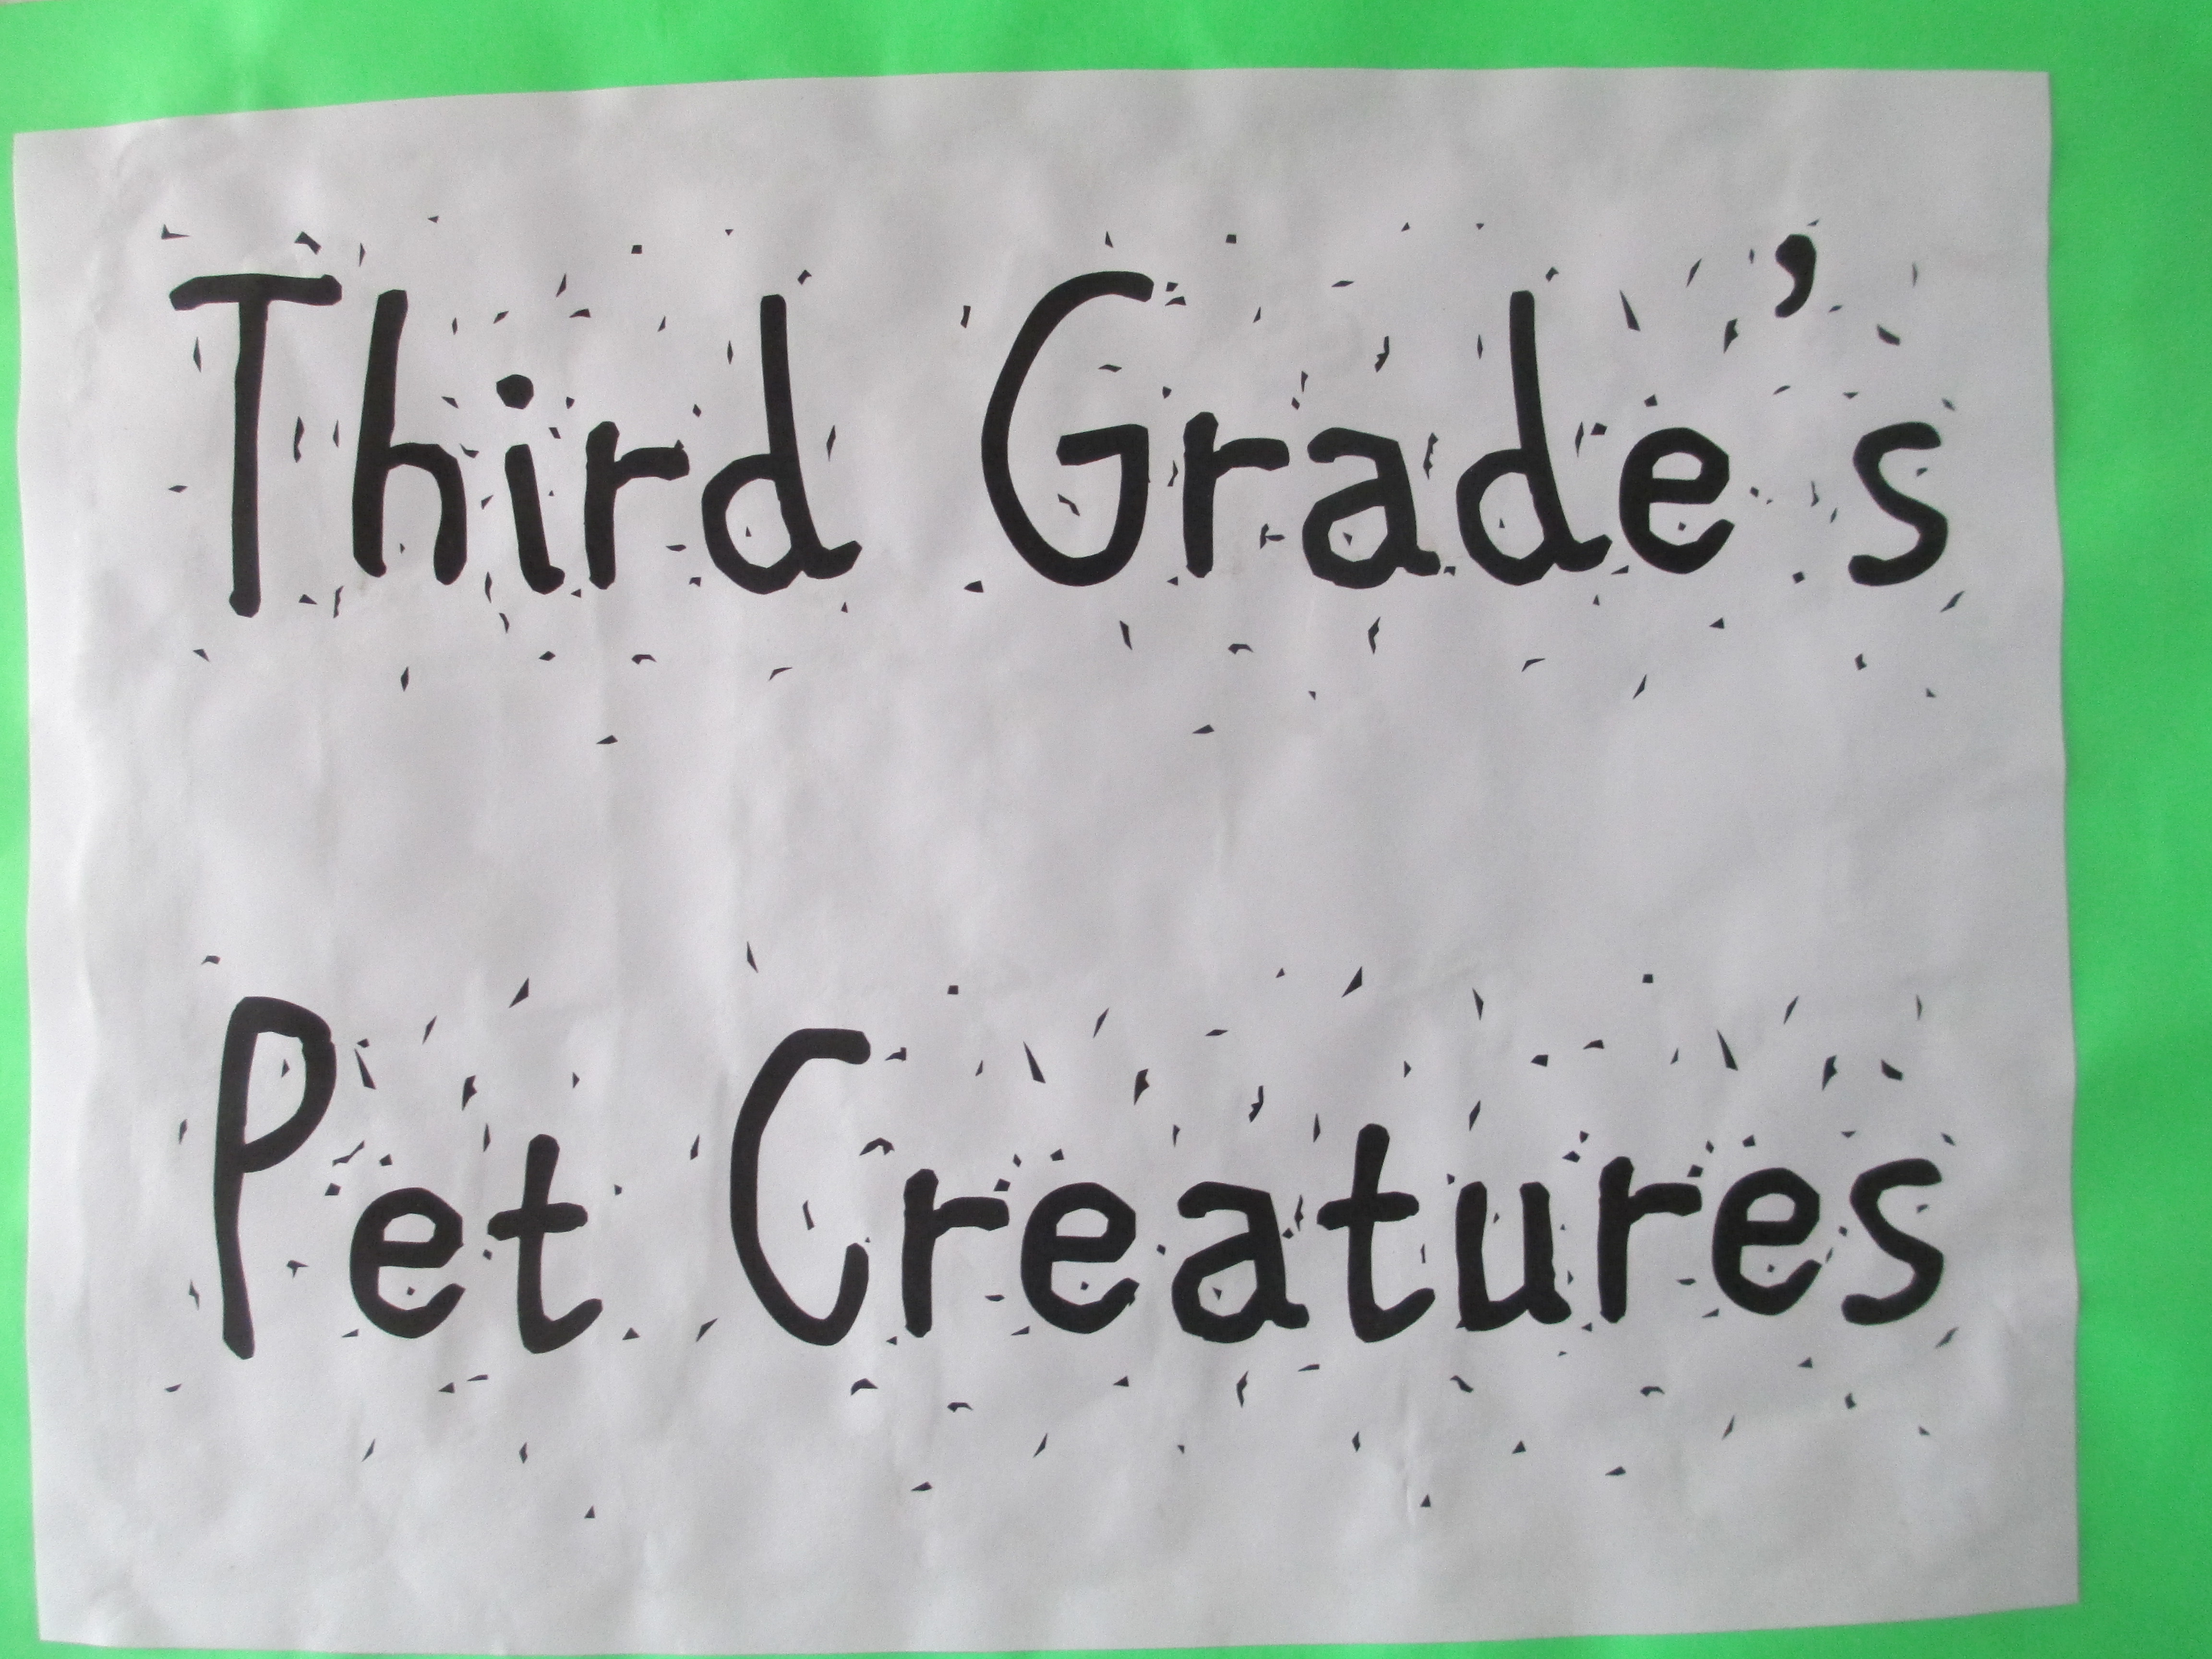 Third Grade's
Pet Creatures